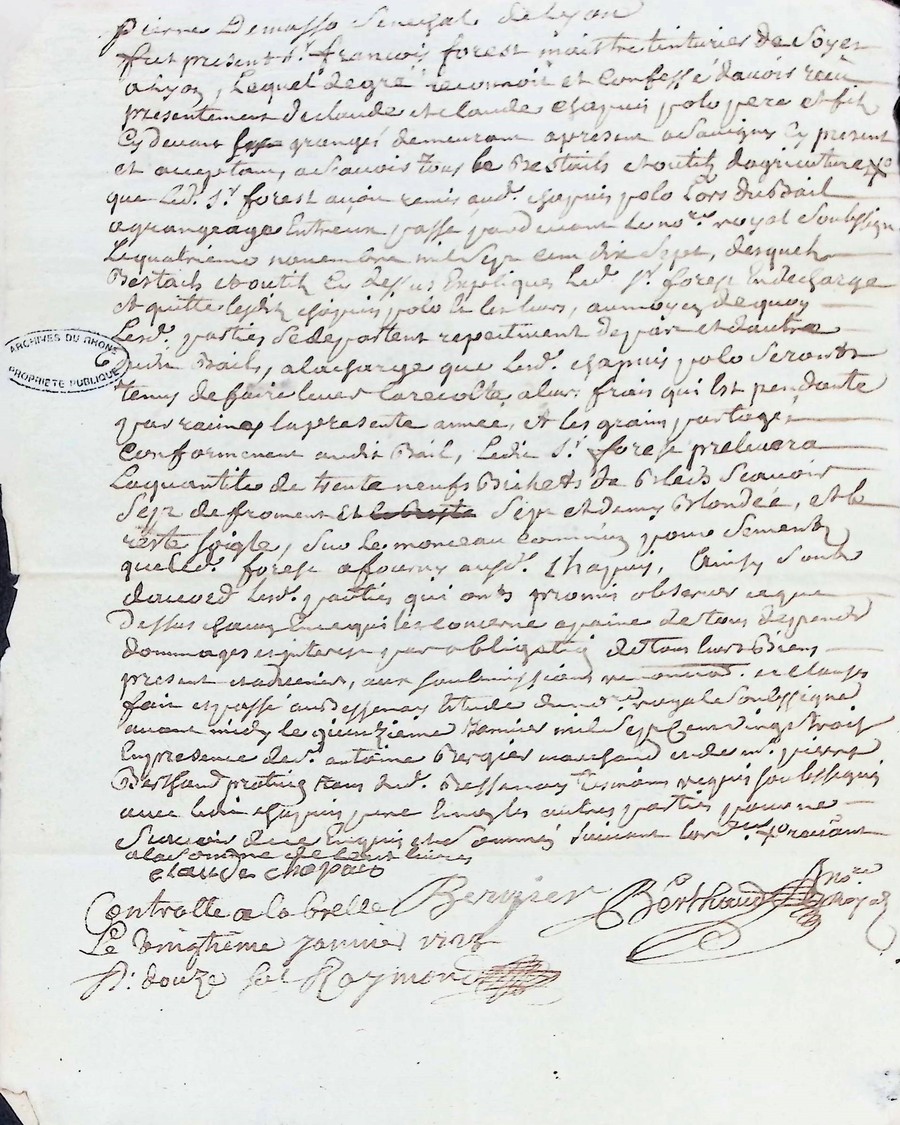 pierre Demasso Senechal de Lyon
fut present Sr. francois forest maistre tinturier de Soyes
a Lyon, Lequel de gré reconnoit et Confesse davoir recu
presentement de claude et claude chapuis polo pere et fils
Cy devant grangés demeurant apresent a Savigny Cy present
et acceptans, a Scavoir tous les Bestails et outils dagriculture
que Led. Sr. forest avoit remis aud. chapuis polo Lors du Bail
a grangeage Entreux passé pardevant Le nore. royal Soubssigné
Le quatrieme novembre mil Sept cent dix Sept, desquels
Bestails et outils Cy dessus Expliques Led. Sr. forest En decharge
Et quitte lesdits chapuis polo et les leurs, au moyen de quoy
Lesd. parties Se departent respectivement de part et dautre
dudit Bail, a la charge que Lesd. chapuis polo Seronts
tenus de faire lever la recolte a leurs frais qui Est pendante
par racines la presente année, Et les grains partagés
Conformement audit Bail, Ledit Sr. forest prelevera
La quantité de trente neufs Bichets de Bleds Scavoir
Sept de froment Sept et demy Blondée, et le
reste Soigle, Sur Le monceau commun pour Semence
que Led. forest a fourny ausd. Chapuis, Ainsy Sont
daccord Lesd. parties qui onts promis observer ce que
Dessus chacun En ce qui les concerne a paine de tous despends
dommages et interest par obligation de tous leurs Biens
present et advenir, aux Soubmissions renonciaôn. et clauses
fait et passé au Bessenay Estude du nore. royal Soubssigné
avant midy le quinzieme Janvier mil Sept Cent vingt trois
En presence de Sr. antoine Bergier marchand et de mr. pierre
Berthaud praticien tous dud. Bessenay Tesmoins requis Soubssignés
avec ledit chapuis pere Et non les autres parties pour ne
Scavoir de ce Enquis et Sommés Suivant Lord.
a la Somme de Cent livres
claude chapuis
Bergier
Berthaud
nore royal
Controllé a la brelle
Le vingtieme janvier 1723
R. douze sol Raymond
ARCHIVES DU RHONE
PROPRIETE PUBLIQUE